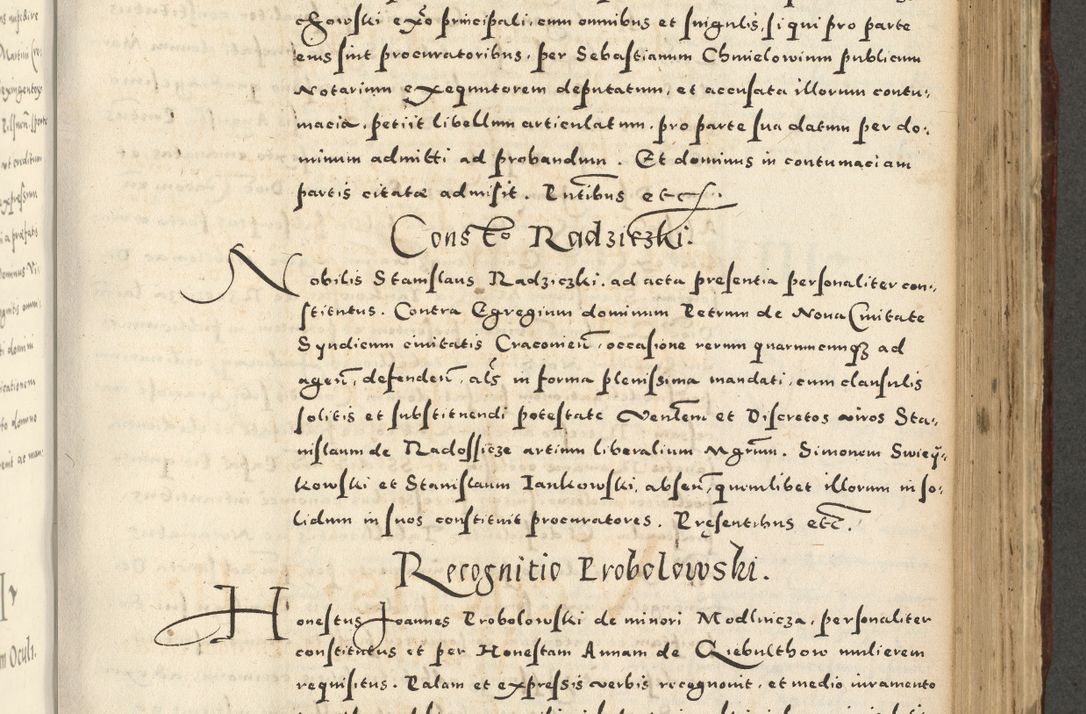 chowski ex͠o principali, cum omnibus et singulis, si qui pro parte
eius sint procuratoribus, per Sebastianum Chmielowium publicum
Notarium exequutorem deputatum, et accusata illorum contu-
macia, petiit libellum articulatum, pro parte sua datum per do-
minum admitti ad probandum. Et dominus in contumaciam
partis citatæ admisit. Pn͠tibus etc.
Cons͠to Radziczki.
Nobilis Stanislaus Radziczki, ad acta presentia personaliter con-
stitutus. Contra Egregium dominum Petrum de Nova Civitate
Syndicum civitatis Cracovien͠, occasione rerum quarumcumqꝫ ad
agen͠, defenden͠, al͠s in forma plenissima mandati, cum clausulis
solitis et substituendi potestate Ven͠lem et Discretos viros Sta-
nislaum de Radossicze artium liberalium Mgr͠um. Simonem Swięy-
kowski et Stanislaum Iankowski, absen͠, quemlibet illorum in so-
lidum in suos constituit procuratores. Pręsentibus etc͠.
Recognitio Probolowski.
Honestus Joannes Probolowski de minori Modlnicza, personaliter
constitutus et per Honestam Annam de Giebulthow mulierem
requisitus. Palam et expressis verbis recognovit, et medio iuramento